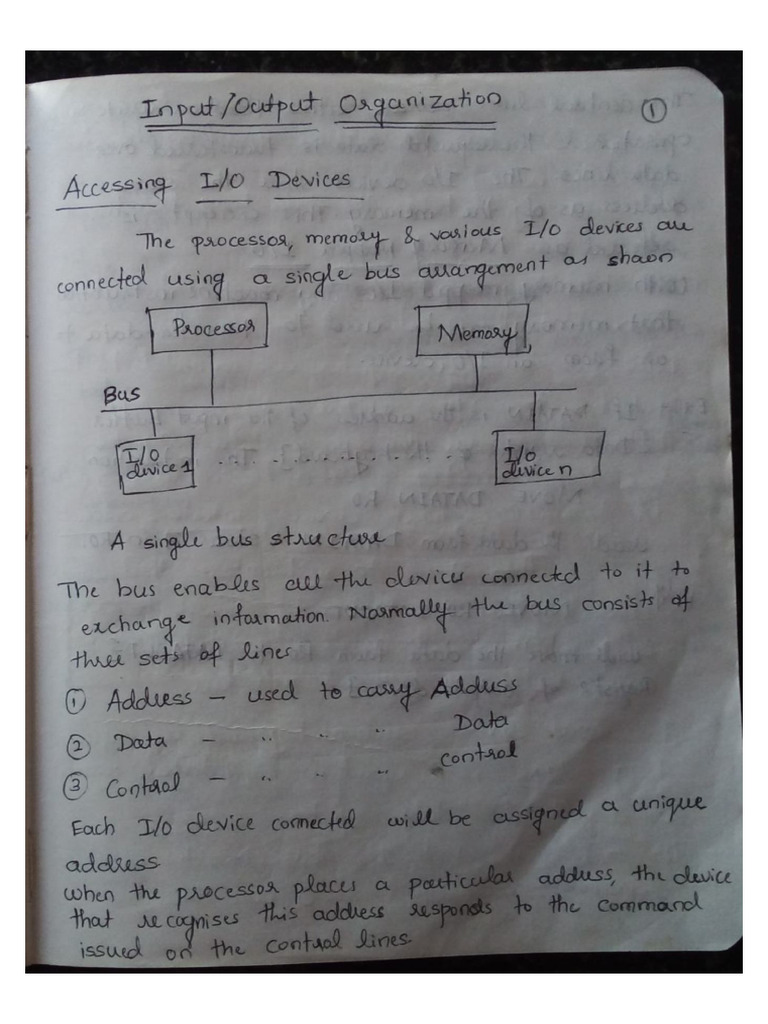 Input/Output Organization
①
Accessing I/O Devices
The processor, memory & various I/O devices are
connected using a single bus arrangement as shown
Processor
Memory
Bus
I/O
device 1
. . . . . . . . . . . .
I/O
device n
A single bus structure
The bus enables all the devices connected to it to
exchange information. Normally the bus consists of
three sets of lines
① Address – used to carry Address
② Data – " " " Data
③ Control – " " " control
Each I/O device connected will be assigned a unique
address
when the processor places a particular address, the device
that recognises this address responds to the command
issued on the control lines.